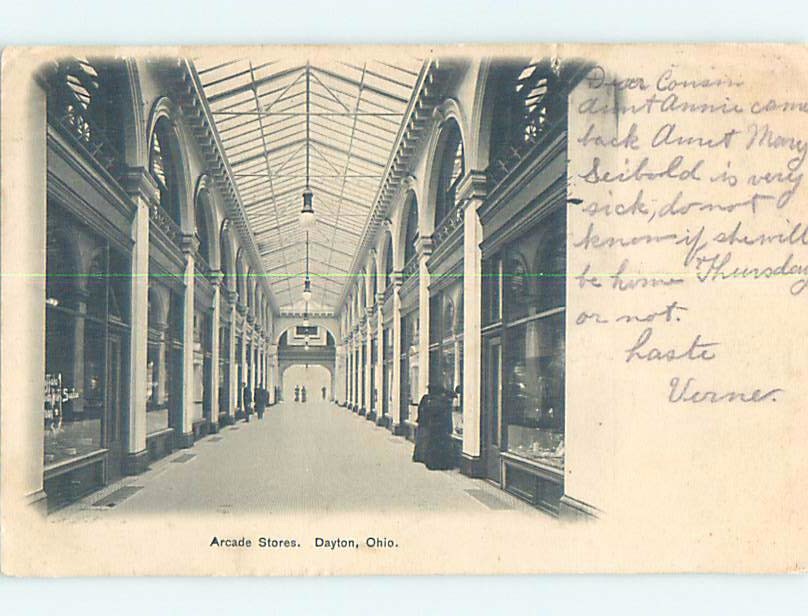 Dear Cousin
aunt Annie came
back Aunt Mary
Seibold is very
sick, do not
know if she will
be home Thursday
or not.
haste
Verne.
Arcade Stores. Dayton, Ohio.